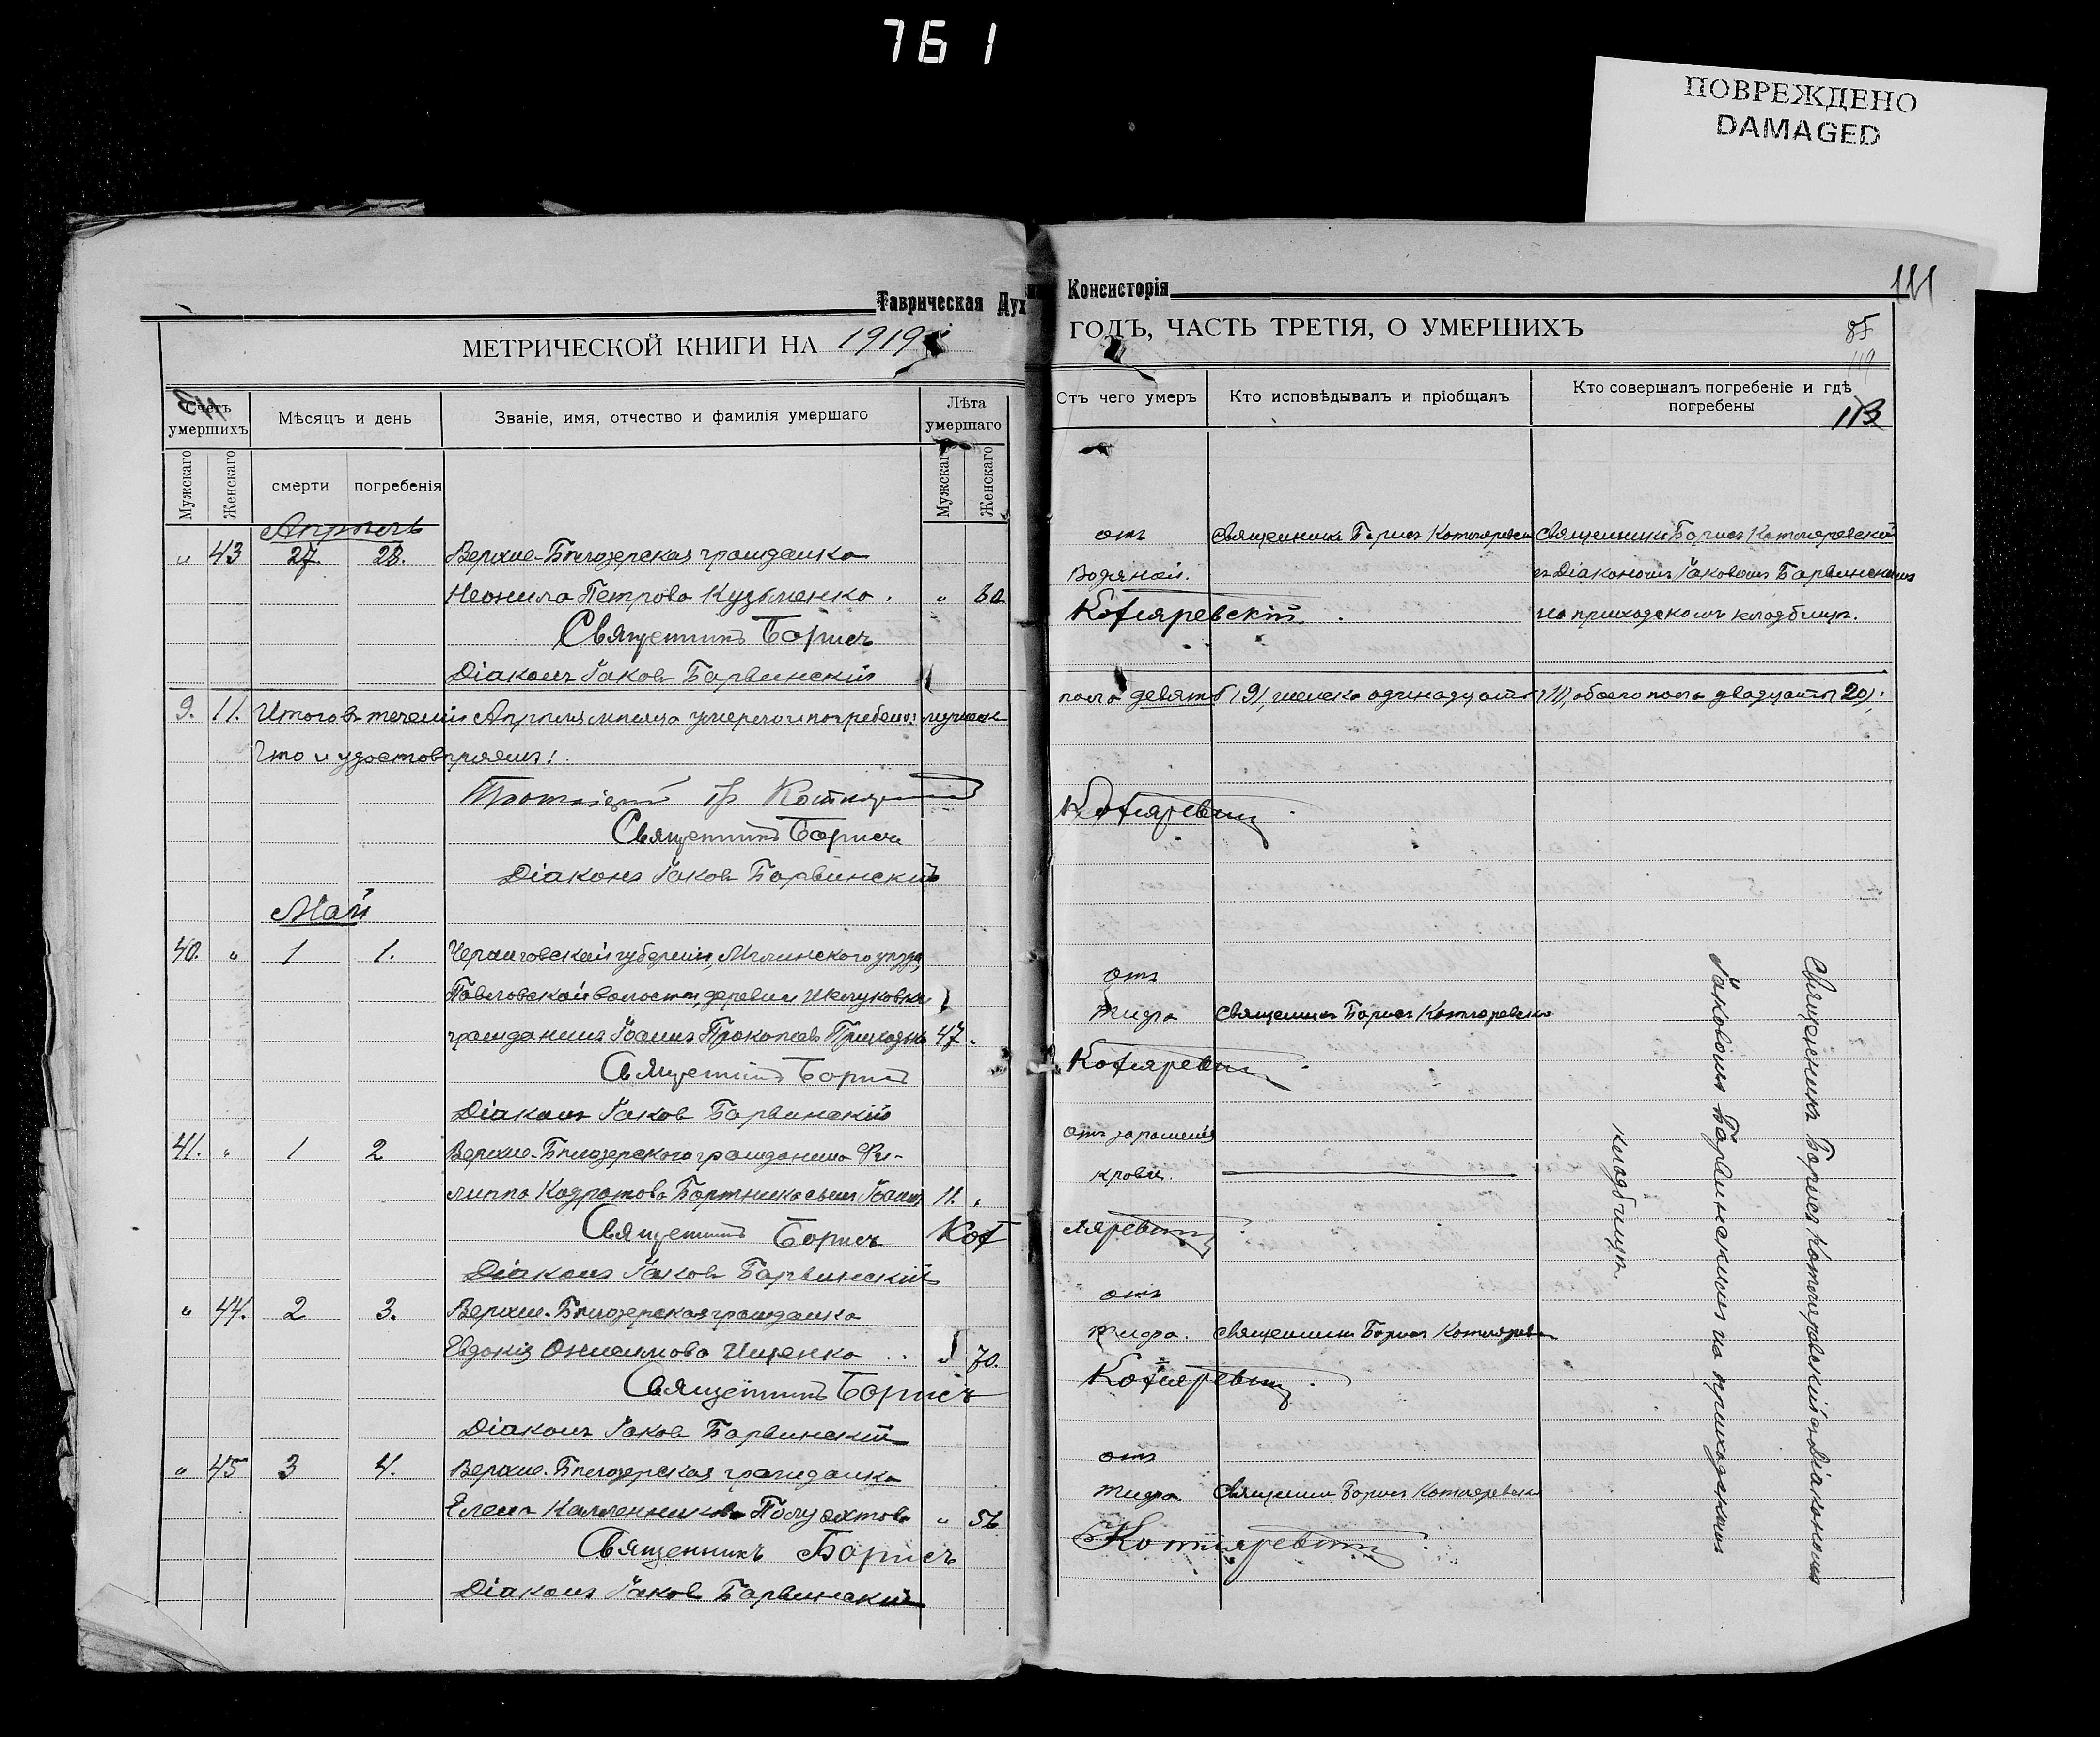 761
ПОВРЕЖДЕНО
DAMAGED
Таврическая Дух
МЕТРИЧЕСКОЙ КНИГИ НА 1919
113
Счетъ умершихъ
Мѣсяцъ и день
Званіе, имя, отчество и фамилія умершаго
Лѣта умершаго
Мужскаго
Женскаго
смерти
погребенія
Мужскаго
Женскаго
Апрѣль
" 43 27. 28. Верхне-Бѣлозерская гражданка
Неонила Петрова Кузьменко. " 60
Священникъ Борисъ
Діаконъ Іаковъ Барвинскій
9. 11. Итого въ теченіи Апрѣля мѣсяца умерло и погребено: мужеск
Что и удостовѣряемъ!
Священникъ Борисъ
Діаконъ Іаковъ Барвинскій
Май
40. " 1 1. Черниговской губерніи, Мглинскаго уѣзда,
Павловской волости, деревни
гражданинъ Іоаннъ Прокопіевъ 47.
Священникъ Борисъ
Діаконъ Іаковъ Барвинскій
41. " 1 2 Верхне-Бѣлозерскаго гражданина Фи-
липпа Бортника сынъ Іоаннъ 11. "
Священникъ Борисъ Кот
Діаконъ Іаковъ Барвинскій
" 44. 2 3. Верхне-Бѣлозерская гражданка
Евдокія Онисимова Ищенко 70.
Священникъ Борисъ
Діаконъ Іаковъ Барвинскій
" 45 3 4. Верхне-Бѣлозерская гражданка
Елена " 56
Священникъ Борисъ
Діаконъ Іаковъ Барвинскій
Консисторія
111
ГОДЪ, ЧАСТЬ ТРЕТІЯ, О УМЕРШИХЪ
85
119
Отъ чего умеръ
Кто исповѣдывалъ и пріобщалъ
Кто совершалъ погребеніе и гдѣ погребены
113
отъ Священникъ Борисъ Котляревскій Священникъ Борисъ Котляревскій
Водяной. съ Діакономъ Іаковомъ Барвинскимъ
Котляревскій. на приходскомъ кладбищѣ.
пола девять (9), женска одинадцать (11), обоего пола двадцать (20).
Котляревскій
отъ
тифа Священникъ Борисъ Котляревскій
Котляревскій
отъ зараженія
крови.
ляревскій
отъ
тифа. Священникъ Борисъ Котляревскій
Котляревскій
отъ
тифа. Священникъ Борисъ Котляревскій
Котляревскій
Священникъ Борисъ Котляревскій съ Діакономъ
Іаковомъ Барвинскимъ на приходскомъ
кладбищѣ.